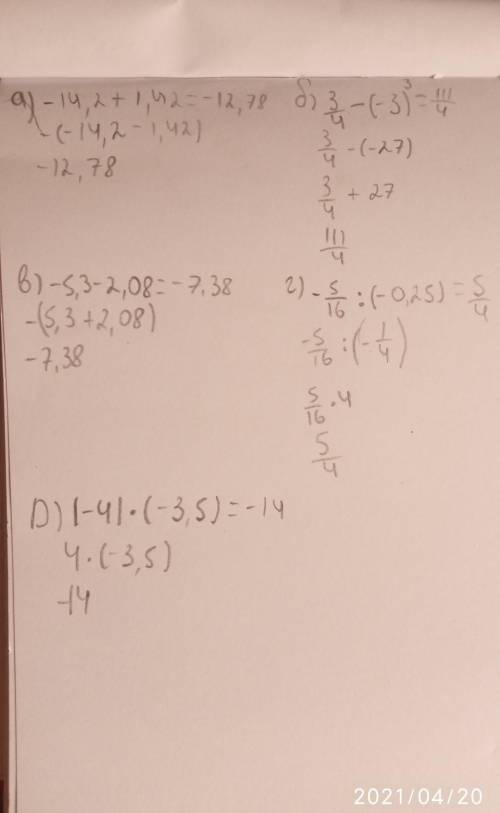 а) -14,2 + 1,42 = -12,78
-(-14,2 - 1,42)
-12,78
б) 3/4 - (-3)³ = 111/4
3/4 - (-27)
3/4 + 27
111/4
в) -5,3 - 2,08 = -7,38
-(5,3 + 2,08)
-7,38
г) -5/16 : (-0,25) = 5/4
-5/16 : (-1/4)
5/16 · 4
5/4
D) |-4| · (-3,5) = -14
4 · (-3,5)
-14
2021/04/20